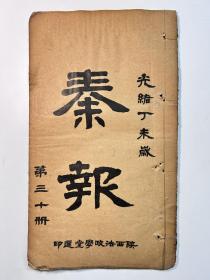 光緒丁未歲
秦報
第三十册
陝西法政學堂選印